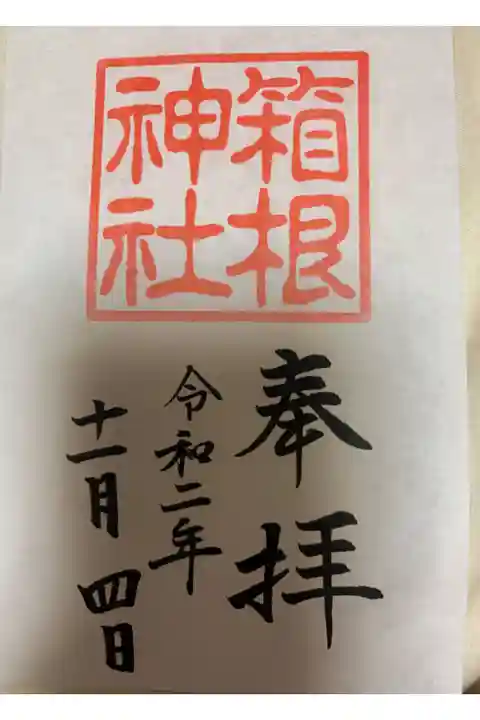 箱根
神社
奉拝
令和二年
十一月四日